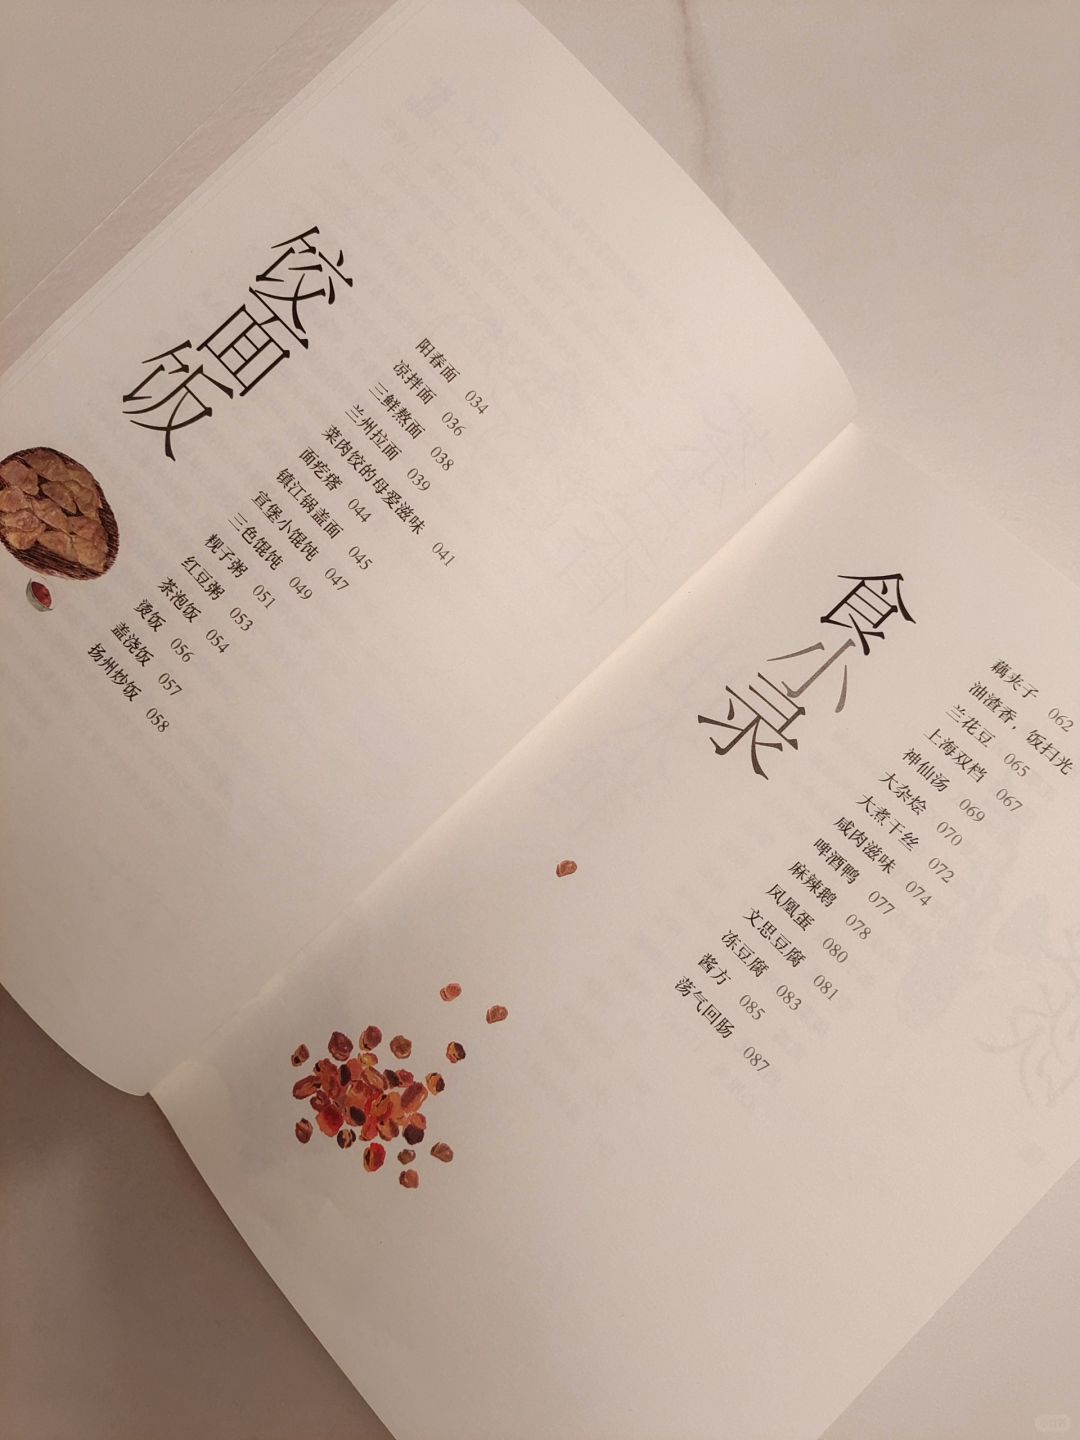 饺面饭
阳春面 034
凉拌面 036
三鲜熬面 038
兰州拉面 039
菜肉饺的母爱滋味 041
面疙瘩 044
镇江锅盖面 045
宣堡小馄饨 047
三色馄饨 049
粯子粥 051
红豆粥 053
茶泡饭 054
烫饭 056
盖浇饭 057
扬州炒饭 058
食小录
藕夹子 062
油渣香，饭扫光
兰花豆 065
上海双档 067
神仙汤 069
大杂烩 070
大煮干丝 072
咸肉滋味 074
啤酒鸭 077
麻辣鹅 078
凤凰蛋 080
文思豆腐 081
冻豆腐 083
酱方 085
荡气回肠 087